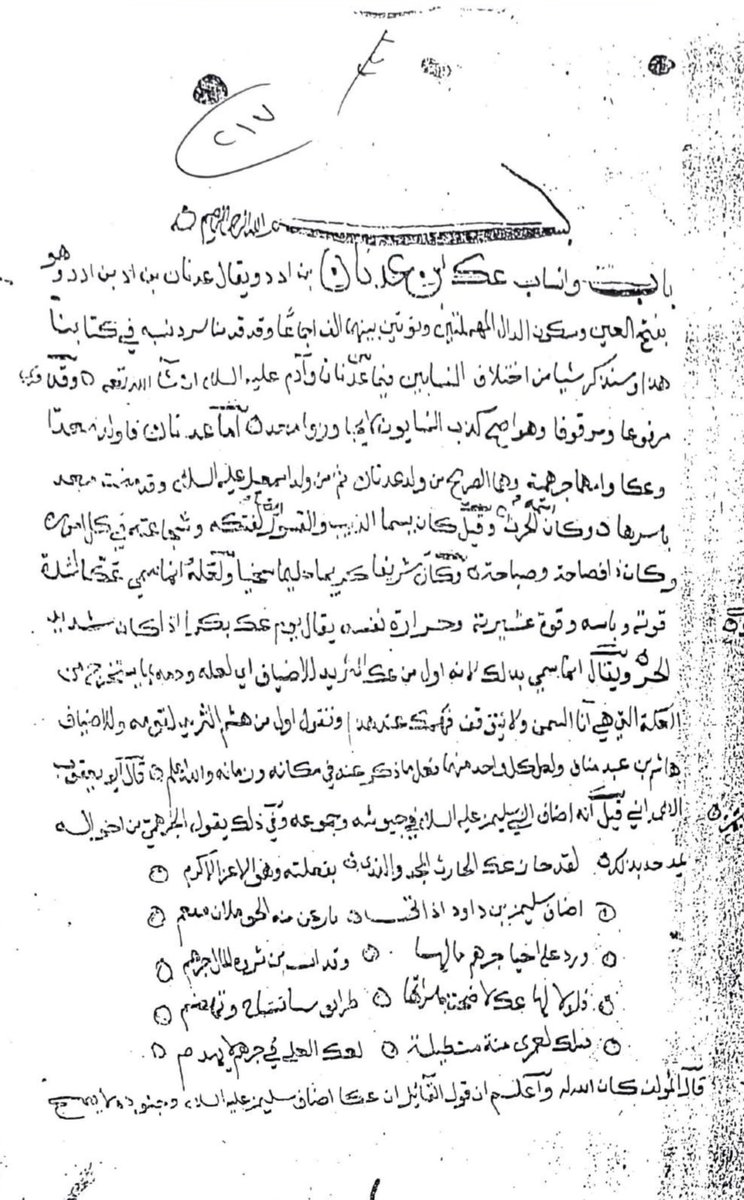 ٢١٧
بسم الله الرحمن الرحيم
باب وانساب عك بن عدنان بن ادد ويقال عدنان بن اد بن ادد وهو
بفتح العين وسكون الدال المهملتين ونونين بينهما الف اجماعا وقد قدمنا سرد نسبه في كتابنا
هذا وسنذكر شيا من اختلاف النسابين فيما بين عدنان وآدم عليه السلام ان شا الله تعالى وقد
مرفوعا وموقوفا وهو اصح كذب النسابون اما عدنان فاولد معدا
وعكا وامهما جرهمية وهما الصريح من ولد عدنان ثم من ولد اسمعيل عليه السلام وقد مضت معد
باسرها وكان الحرث وقيل كان يسما الذيب والقسور لفتكه وشجاعته في كل امور
وكان ذا فصاحة وصباحة وكان شريفا كريما حليما سخيا ولعله انما سمي عكا لشدة
قوته وباسه وقوة عشيرته وحرارة نفسه يقال يوم عك بكر اذا كان شديد
الحر ويقال انما سمي بذلك لانه اول من عك الثريد للاضياف اي لعله ودمه بما يستخرج من
العكة التي هي انا السمن ولا يتوقف فهمك عند هذا ونقول اول من هشم الثريد لقومه وللاضياف
هاشم بن عبد مناف ولعل كل واحد منهما فعل ما ذكر عنه في مكانه وزمانه والله اعلم قال ابو يعقوب
قيل انه اضاف النبي سليمن عليه السلام في جيوشه وجموعه وفي ذلك يقول الجرهمي من اخواله
يمدحه بذلك لقد حاز عك الحارث المجد والندى بفعلته وهو الاعز الاكرم
اضاف سليمن بن داود اذ
ورد على احيا جرهم مالها وقد من ثروه المال جرهم
عك
لعمرى منة مستطيلة لعك العلى في جرهم
قال المولف كان الله له واعلم ان قول القائل ان عكا اضاف سليمن عليه السلام وجنوده لا يصح